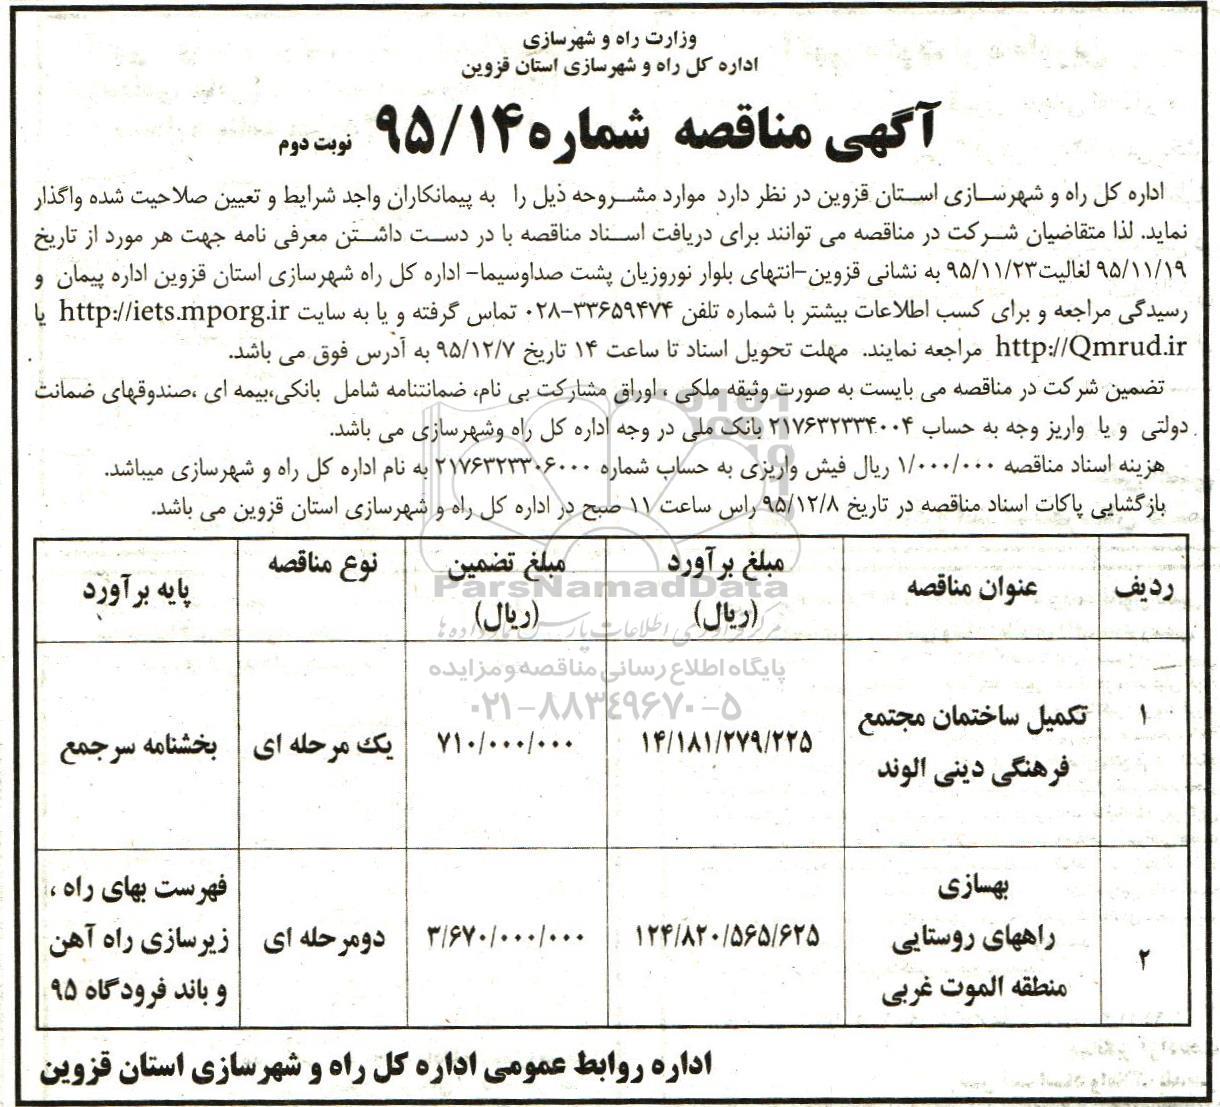 وزارت راه و شهرسازی
اداره کل راه و شهرسازی استان قزوین
آگهی مناقصه شماره ۹۵/۱۴ نوبت دوم
اداره کل راه و شهرسازی استان قزوین در نظر دارد موارد مشروحه ذیل را به پیمانکاران واجد شرایط و تعیین صلاحیت شده واگذار
نماید. لذا متقاضیان شرکت در مناقصه می توانند برای دریافت اسناد مناقصه با در دست داشتن معرفی نامه جهت هر مورد از تاریخ
۹۵/۱۱/۱۹ لغالیت۹۵/۱۱/۲۳ به نشانی قزوین-انتهای بلوار نوروزیان پشت صداوسیما- اداره کل راه شهرسازی استان قزوین اداره پیمان و
رسیدگی مراجعه و برای کسب اطلاعات بیشتر با شماره تلفن ۳۳۶۵۹۴۷۴-۰۲۸ تماس گرفته و یا به سایت http://iets.mporg.ir یا
http://Qmrud.ir مراجعه نمایند. مهلت تحویل اسناد تا ساعت ۱۴ تاریخ ۹۵/۱۲/۷ به آدرس فوق می باشد.
تضمین شرکت در مناقصه می بایست به صورت وثیقه ملکی ، اوراق مشارکت بی نام، ضمانتنامه شامل بانکی،بیمه ای ،صندوقهای ضمانت
دولتی و یا واریز وجه به حساب ۲۱۷۶۳۲۲۳۳۴۰۰۴ بانک ملی در وجه اداره کل راه وشهرسازی می باشد.
هزینه اسناد مناقصه ۱/۰۰۰/۰۰۰ ریال فیش واریزی به حساب شماره ۲۱۷۶۳۲۳۳۰۶۰۰۰ به نام اداره کل راه و شهرسازی میباشد.
بازگشایی پاکات اسناد مناقصه در تاریخ ۹۵/۱۲/۸ راس ساعت ۱۱ صبح در اداره کل راه و شهرسازی استان قزوین می باشد.
ردیف عنوان مناقصه مبلغ برآورد (ریال) مبلغ تضمین (ریال) نوع مناقصه پایه برآورد
۱ تکمیل ساختمان مجتمع فرهنگی دینی الوند ۱۴/۱۸۱/۲۷۹/۲۲۵ ۷۱۰/۰۰۰/۰۰۰ یک مرحله ای بخشنامه سرجمع
۲ بهسازی راههای روستایی منطقه الموت غربی ۱۲۴/۸۲۰/۵۶۵/۶۲۵ ۳/۶۷۰/۰۰۰/۰۰۰ دومرحله ای فهرست بهای راه ، زیرسازی راه آهن و باند فرودگاه ۹۵
اداره روابط عمومی اداره کل راه و شهرسازی استان قزوین
ParsNamadData
پایگاه اطلاع رسانی مناقصه و مزایده
۰۲۱-۸۸۳۴۹۶۷۰-۵